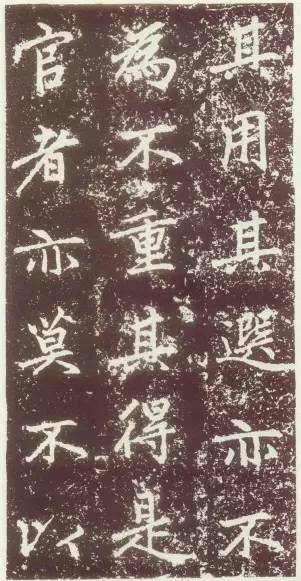 其用其選亦不
為不重其得是
官者亦莫不以